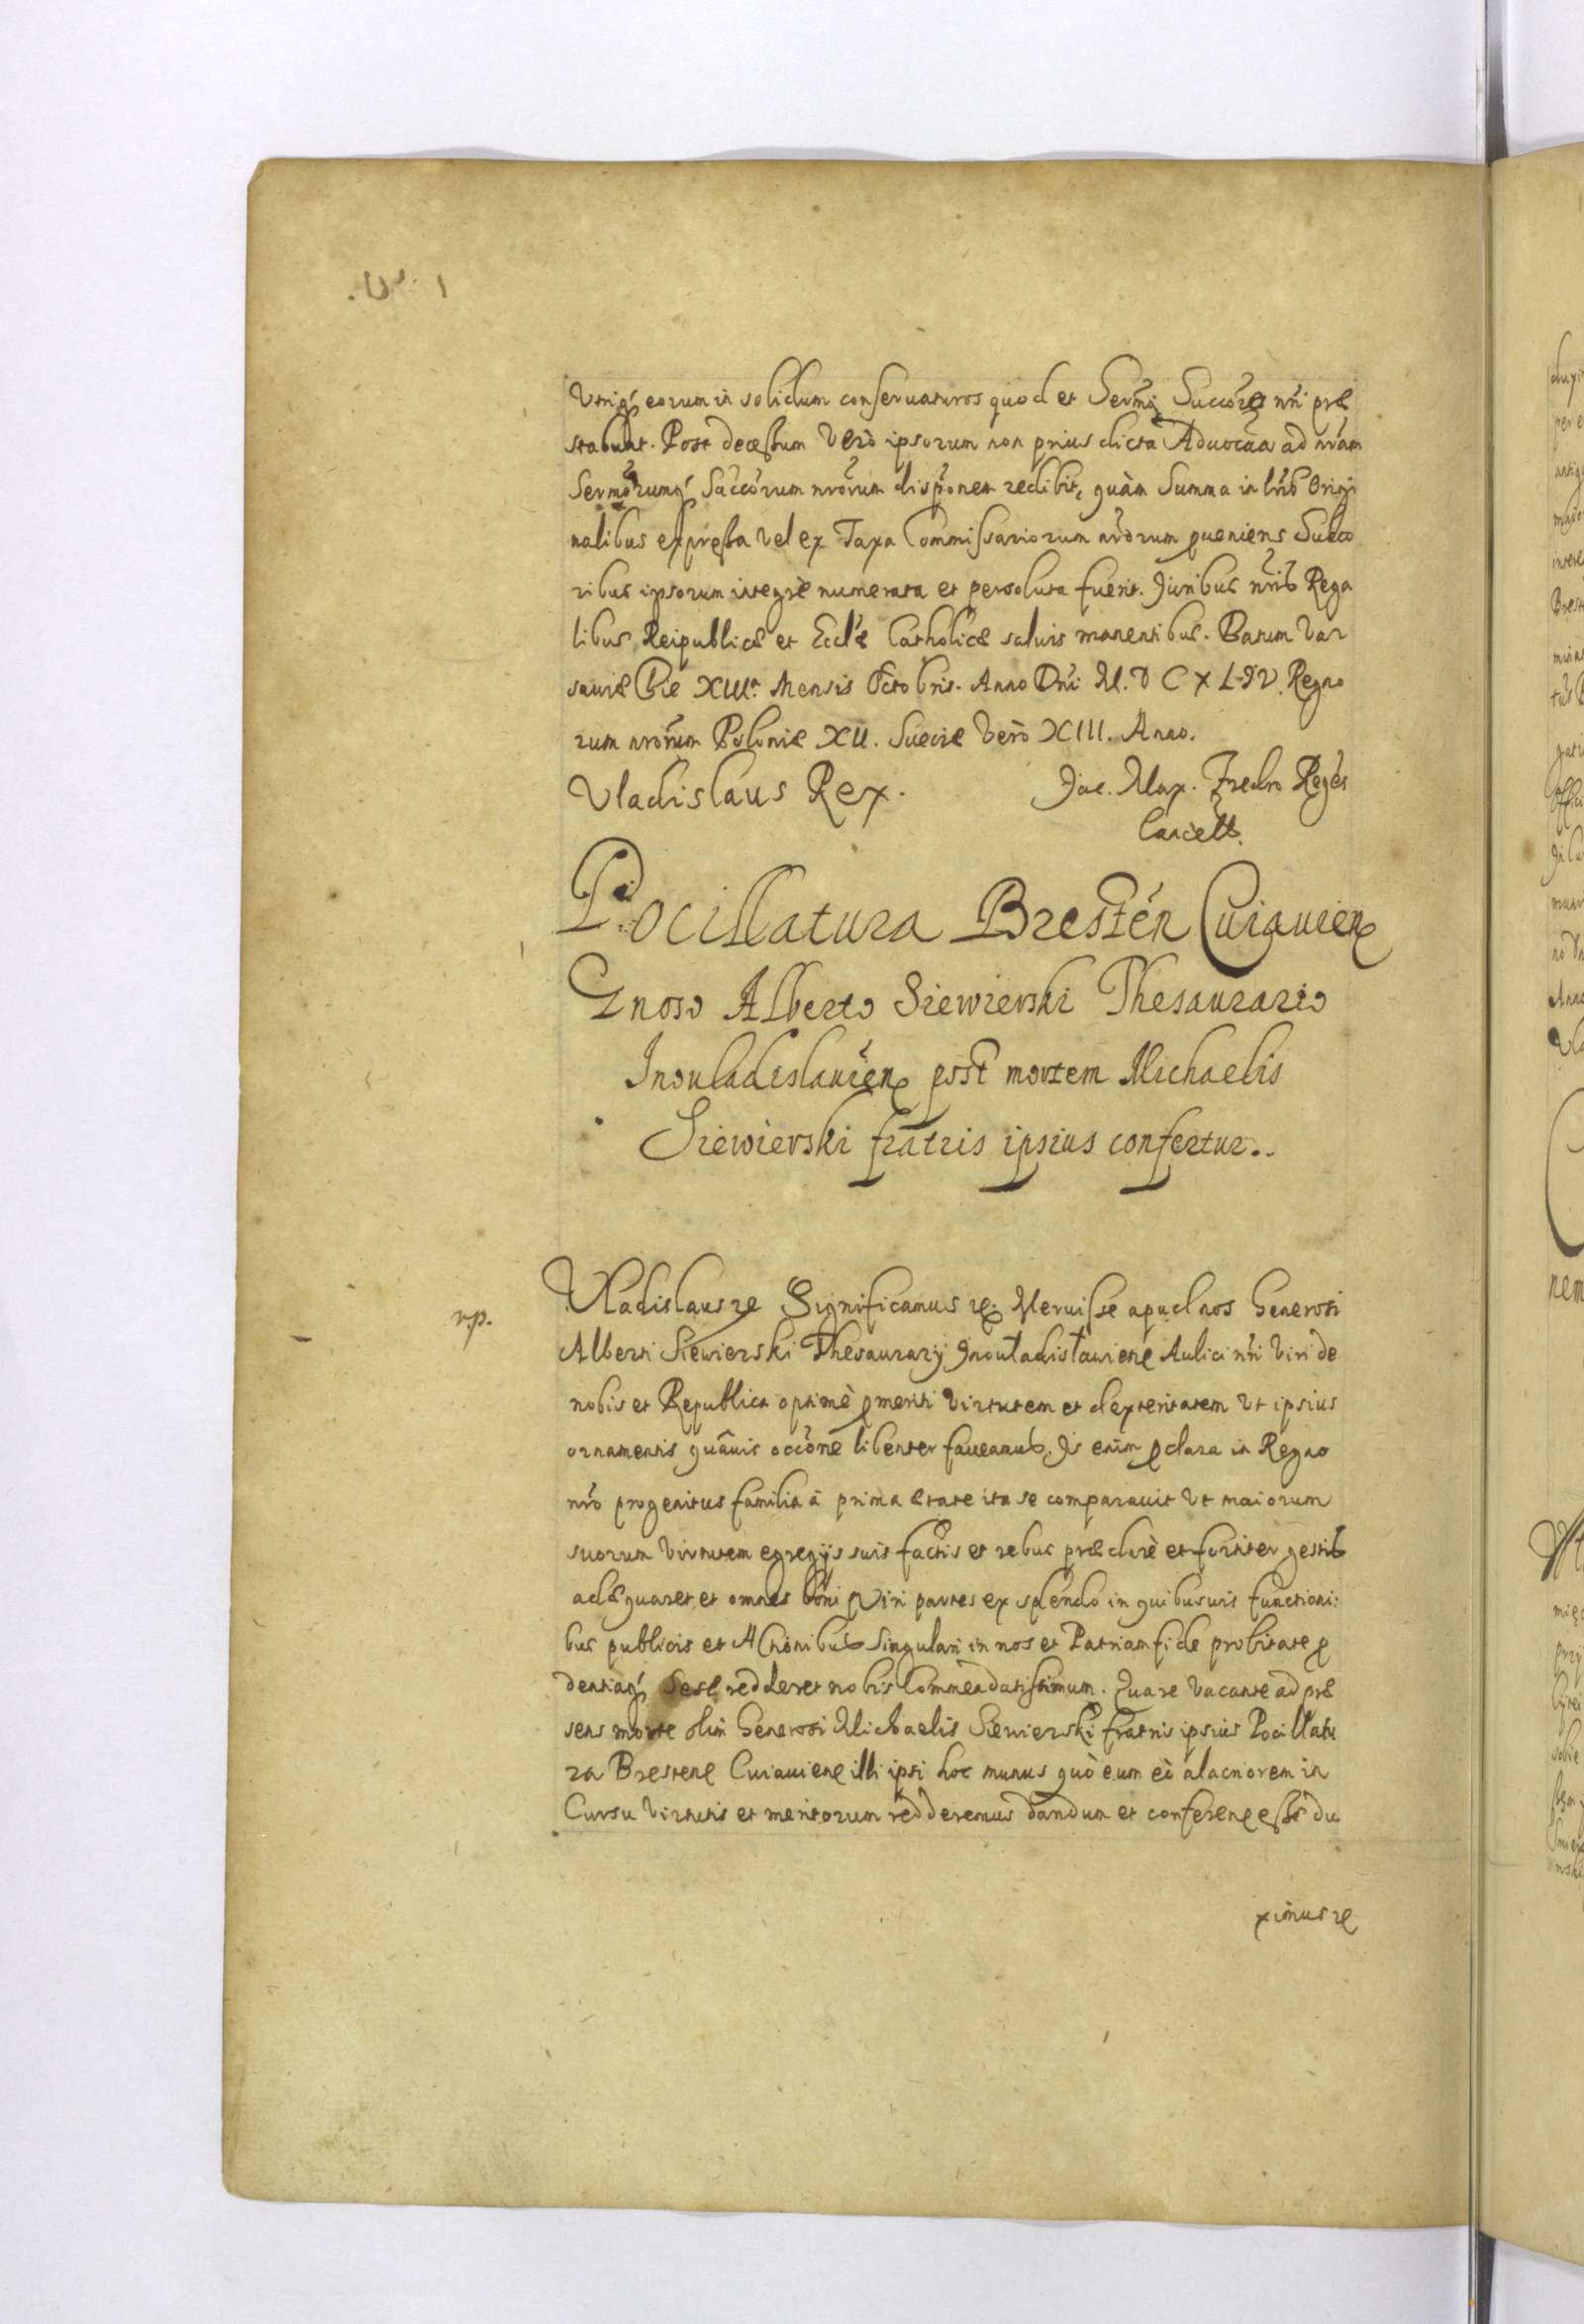 Utriq́ eorum in solidum conservaturos quod et Serm̃i Succõres nri præ
stabunt. Post decessum Verò ipsorum non prius dicta Advocãa ad nr̃am
Serm̃orumq́ Succõrum nrõrum disp̃onem redibit, quàm Summa in lr̃is Origi
nalibus expressa vel ex Taxa Commissariorum nrõrum pveniens Succo
ribus ipsorum integrè numerata et persoluta fuerit. Juribus nr̃is Rega
libus, Reipublicæ et Eccl̃æ Catholicæ salvis manentibus. Datum Var
saviæ Die XIIIa. Mensis Octobris. Anno Dñi M. D C X L IV. Regno
rum nrõrum Poloniæ XII. Sueciæ Verò XIII. Anno.
Vladislaus Rex.
Jac. Max. Fredro Regẽs
Cancell.
Pocillatura Brestẽn Cuiavien
Gnoso Alberto Siewierski Thesaurario
Inouladislauien post mortem Michaelis
Siewierski fratris ipsius confertur..
rp.
Vladislaus etc Significamus etc. Meruisse apud nos Generosi
Alberti Siewierski Thesaurarij Inouladislauiene Aulici nri Viri de
nobis et Republica optimè pmeriti Virtutem et dexteritatem Ut ipsius
ornamentis quâvis occõne libenter faveamus. Is enim pclara in Regno
nr̃o progenitus familia à prima ætate ita se comparauit Ut maiorum
suorum Virtutem egregijs suis factis et rebus præclarè et fortiter gestis
adæquaret et omnes boni Viri partes explendo in quibusuis functioni:
bus publicis et Actionibus Singulari in nos et Patriam fide probitate p
dentiaq́ Sese redderet nobis Commendatissimum. Quare Vacante ad præ
sens morte olim Generosi Michaelis Siewierski fratris ipsius Pocillatu
ra Brestene Cuiauiene illi ipsi hoc munus quò eum eò alacriorem in
Cursu Virtutis et meritorum redderemus dandum et conferen esse du
ximus etc